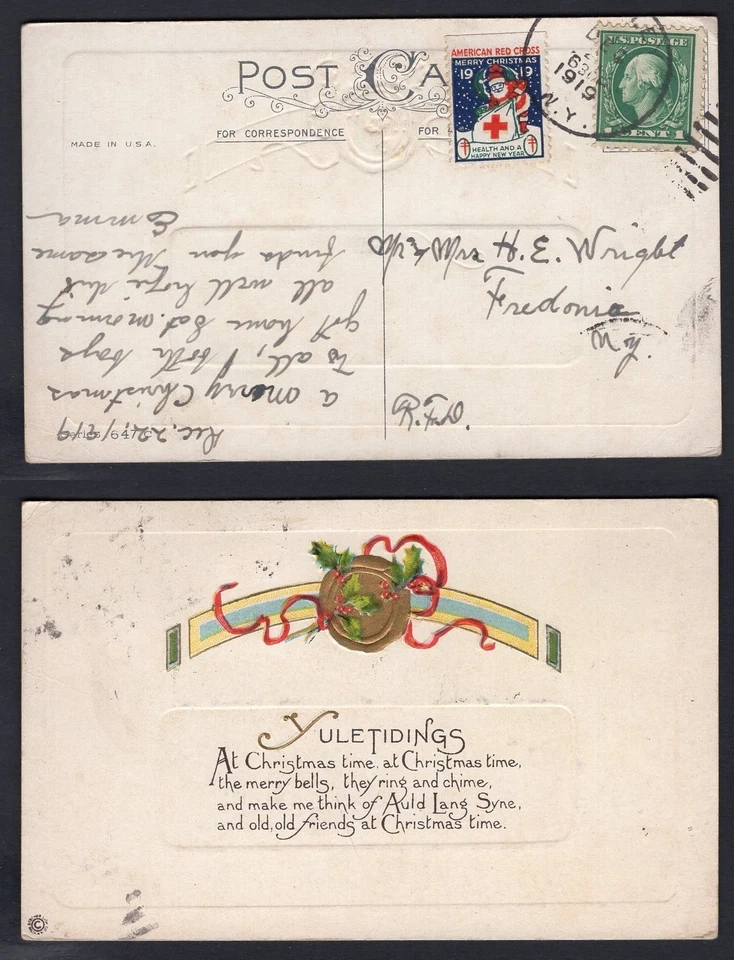 POST CA
AMERICAN RED CROSS
MERRY CHRISTMAS
19 19
HEALTH AND A
HAPPY NEW YEAR
U.S. POSTAGE
CENT 1
1919
N.Y.
FOR CORRESPONDENCE
FOR
MADE IN U.S.A.
Mr & Mrs H. E. Wright
Fredonia
N.Y.
R.F.D.
Series 647 C
Dec. 22, 1919
a merry Christmas
to all, both boys
got home Sat. morning
all well hope this
finds you the same
Emma
YULETIDINGS
At Christmas time, at Christmas time,
the merry bells, they ring and chime,
and make me think of Auld Lang Syne,
and old, old friends at Christmas time.
©